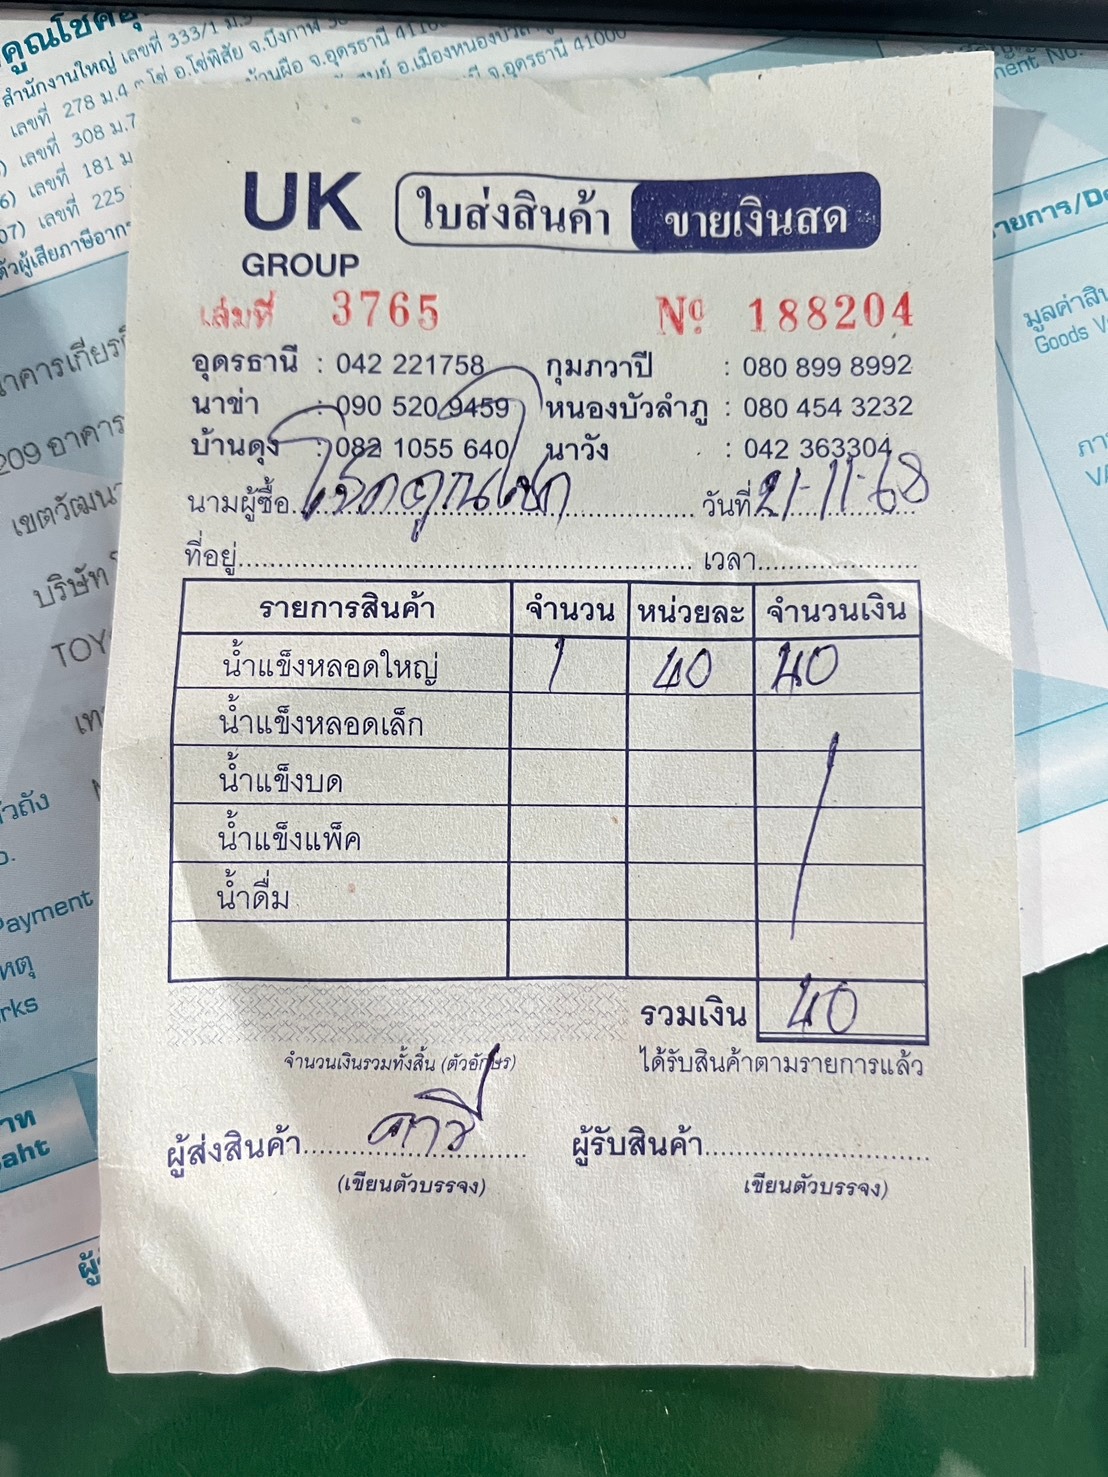 UK
GROUP
ใบส่งสินค้า ขายเงินสด
เล่มที่ 3765 Nº 188204
อุดรธานี : 042 221758 กุมภวาปี : 080 899 8992
นาข่า : 090 520 9459 หนองบัวลำภู : 080 454 3232
บ้านดุง : 082 1055 640 นาวัง : 042 363304
นามผู้ซื้อ โชคคูณโชค วันที่ 21-11-68
ที่อยู่ เวลา
รายการสินค้า จำนวน หน่วยละ จำนวนเงิน
น้ำแข็งหลอดใหญ่ 1 40 40
น้ำแข็งหลอดเล็ก
น้ำแข็งบด
น้ำแข็งแพ็ค
น้ำดื่ม
รวมเงิน 40
จำนวนเงินรวมทั้งสิ้น (ตัวอักษร) ได้รับสินค้าตามรายการแล้ว
ผู้ส่งสินค้า ผู้รับสินค้า
(เขียนตัวบรรจง) เขียนตัวบรรจง)
สำนักงานใหญ่ เลขที่ 333/1
เลขที่ 278 ม.4 อ.โซ่พิสัย จ.บึงกาฬ
เลขที่ 308 ม.7 จ.อุดรธานี
เลขที่ 181 อ.เมืองหนองบัวลำภู
เลขที่ 225 จ.อุดรธานี 41000
209 อาคาร
บริษัท
Payment
มูลค่าสิน
Goods